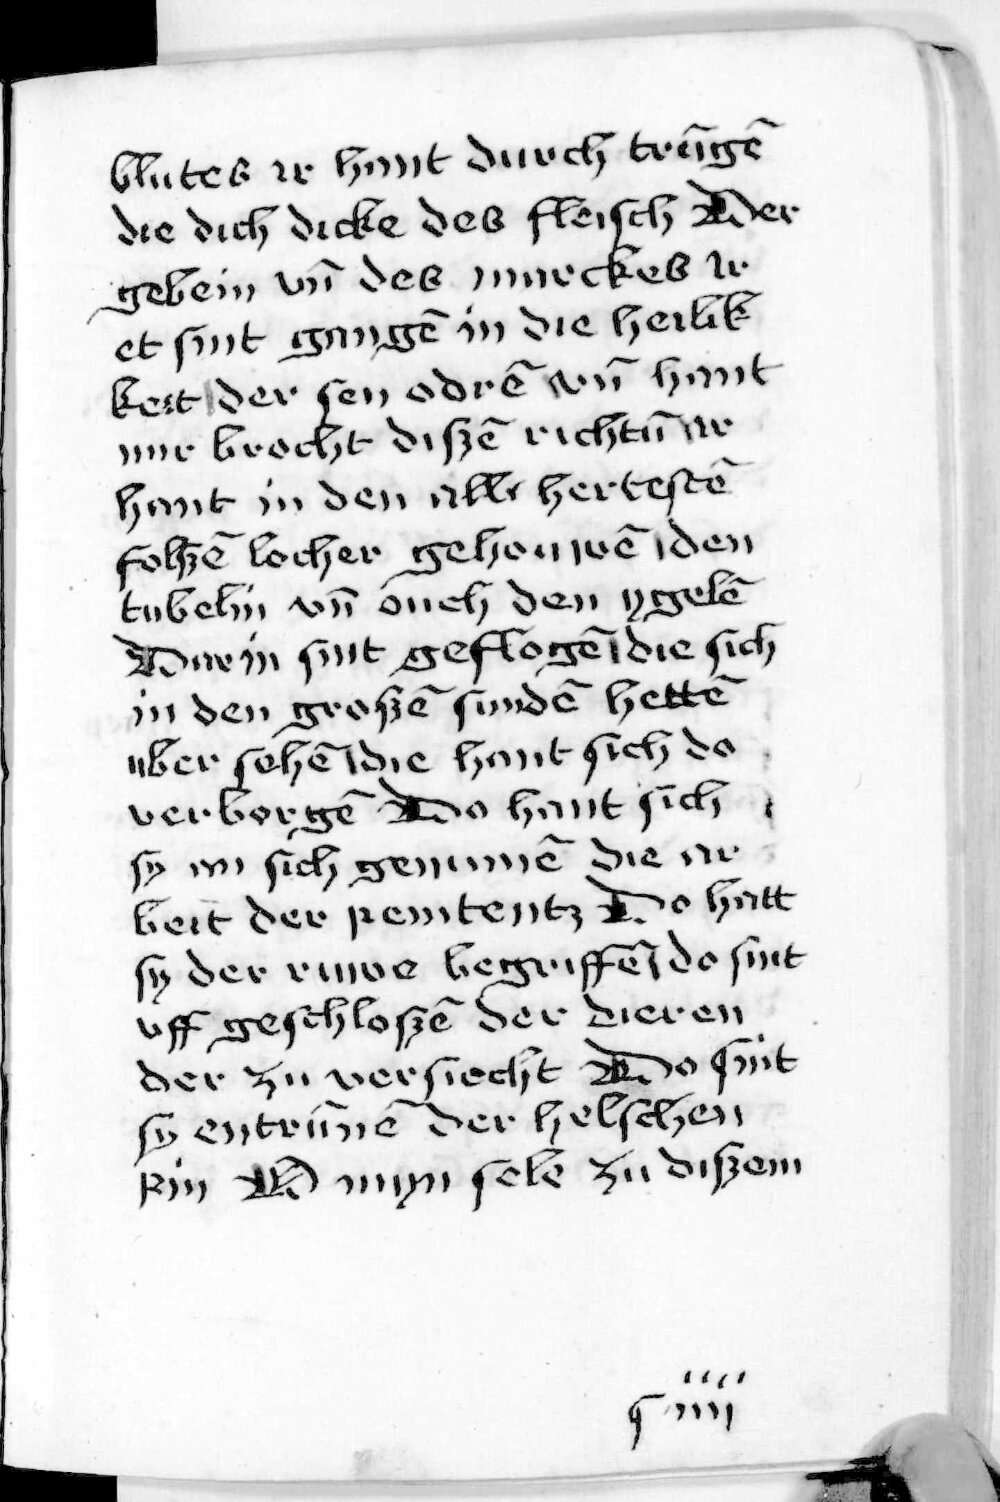 blutes ir hant durch trūgē
die dich dicke des fleisch Der
gebein vn̄ des marckes Ir
et sint gangē in die heilik
keit der sen odrē vn̄ hant
mir brocht diszē richtū Ir
hant in den aller hertestē
folszē locher gehouwē den
tubelin vn̄ ouch den ygelē
Darin sint geflogē die sich
in den groszē sundē hettē
uber sehē die hant sich do
verborgē Do hant sich
sy an sich genumē die ar
beit der penitentz Do hatt
sy der ruwe begriffē do sint
vff geschloszē der dieren
der zu versiecht Do sint
sy entrūnē der helschen
pin O myn sele zu diszem
q iiii